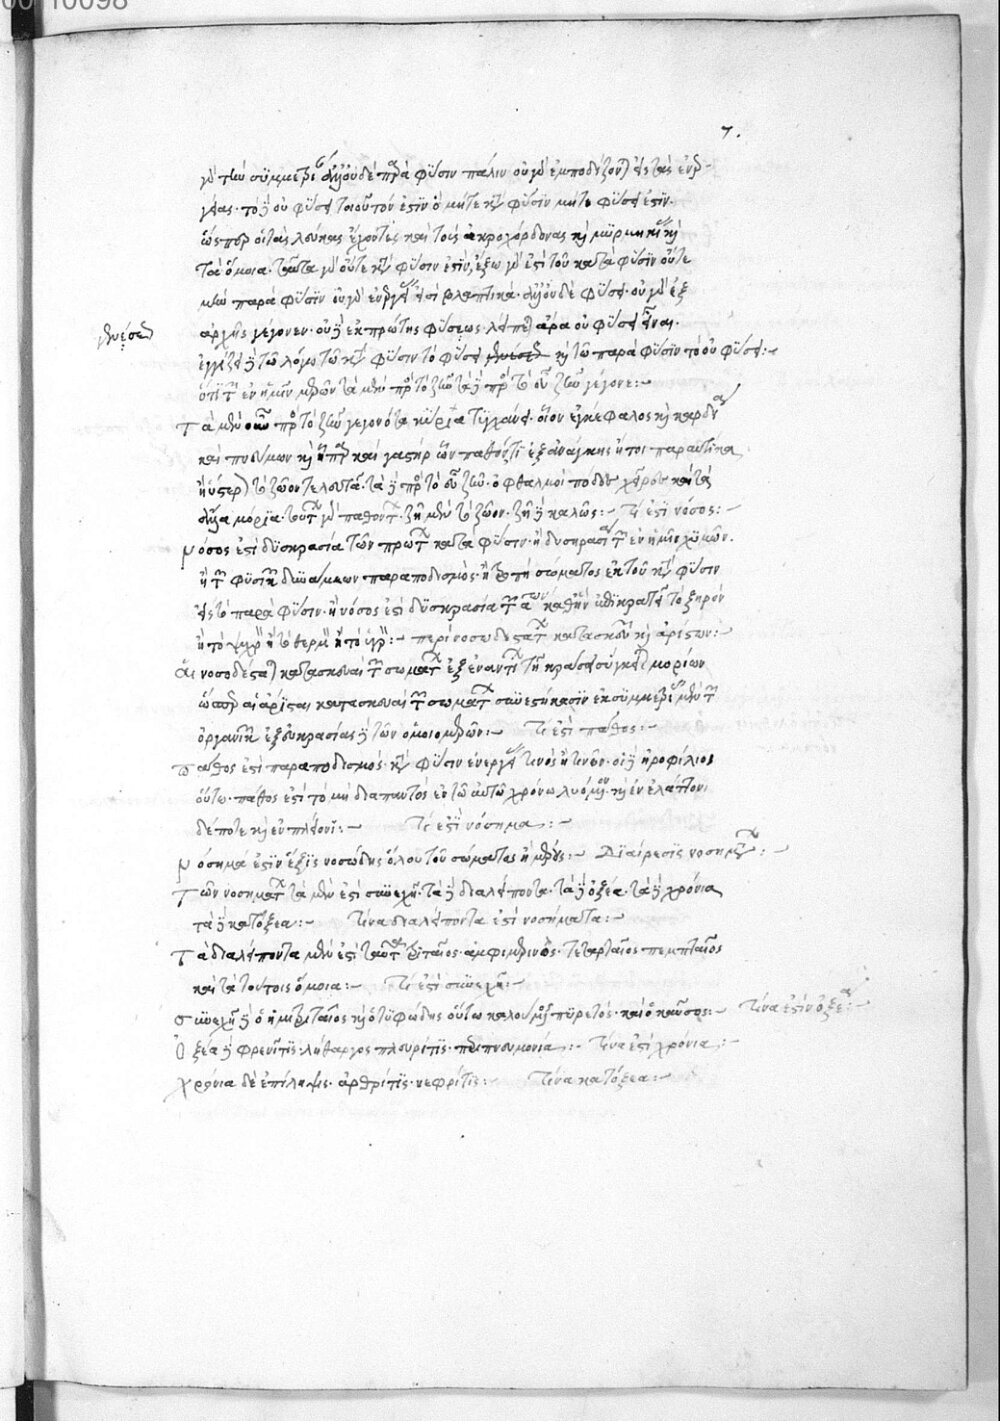 00 10098
7.
γὰρ τὴν συμμετρίαν ἀλλ' οὐδὲ παρὰ φύσιν πάλιν οὐ γὰρ ἐμποδίζονται ἔς τὰς ἐνερ-
γείας· τὸ δὲ οὐ φύσει τοιοῦτόν ἐστιν ὃ μήτε κατὰ φύσιν μήτε φύσει ἐστίν.
ὥσπερ οἱ τὰς λεύκας ἔχοντες καὶ τοὺς ἀκροχόρδονας καὶ μυρμηκίας καὶ
τὰ ὅμοια. ταῦτα γὰρ οὔτε κατὰ φύσιν ἐστίν, ἔξω γάρ ἐστι τοῦ κατὰ φύσιν οὔτε
μὴν παρὰ φύσιν οὐ γὰρ ἐνεργείας ἐστὶ βλαπτικά· ἀλλ' οὐδὲ φύσει· οὐ γὰρ ἐξ
ἀρχῆς γέγονεν· οὐδὲ ἐκ πρώτης φύσεως. λείπεται ἄρα οὐ φύσει εἶναι.
ἐγγίζει δὲ τῷ λόγῳ τῷ κατὰ φύσιν τὸ φύσει καὶ τῷ παρὰ φύσιν τὸ οὐ φύσει:-
ὅτι τῶν ἐν ἡμῖν μερῶν τὰ μὲν πρὸς τὸ ζῆν τὰ δὲ πρὸς τὸ εὖ ζῆν γέγονε:-
Τὰ μὲν οὖν πρὸς τὸ ζῆν γεγονότα κύρια τυγχάνει. οἷον ἐγκέφαλος καὶ καρδία
καὶ πνεύμων καὶ ἧπαρ καὶ γαστὴρ ὧν παθόντων ἐξ ἀνάγκης ἤτοι παραυτίκα
ἢ ὕστερον τὸ ζῶον τελευτᾷ. τὰ δὲ πρὸς τὸ εὖ ζῆν. ὀφθαλμοὶ πόδες χεῖρες καὶ τὰ
ἄλλα μόρια. τούτων γὰρ παθόντων. ζῇ μὲν τὸ ζῶον. ζῇ δὲ καλῶς:- Τί ἐστι νόσος:-
Νόσος ἐστὶ δυσκρασία τῶν πρώτων κατὰ φύσιν. ἢ δυσκρασία τῶν ἐν ἡμῖν χυμῶν.
ἢ τῶν φυσικῶν δυνάμεων παραποδισμὸς. ἢ ἐκτροπὴ σώματος ἐκ τοῦ κατὰ φύσιν
εἰς τὸ παρὰ φύσιν. ἢ νόσος ἐστὶ δυσκρασία τῶν στοιχείων καθ' ἣν ἐπικρατεῖ τὸ ξηρὸν
ἢ τὸ ψυχρὸν ἢ τὸ θερμὸν ἢ τὸ ὑγρόν:- περὶ νοσωδεστάτων κατασκευῶν καὶ ἀρίστων:-
Αἱ νοσωδέσταται κατασκευαὶ τῶν σωμάτων ἐξ ἐναντίων τῇ κράσει σύγκεινται μορίων
ὥσπερ αἱ ἄρισται κατασκευαὶ τῶν σωμάτων συνεστήκασιν ἐκ συμμετρίας μὲν τῶν
ὀργανικῶν ἐξ εὐκρασίας δὲ τῶν ὁμοιομερῶν:- Τί ἐστι πάθος:-
Πάθος ἐστὶ παραποδισμός. κατὰ φύσιν ἐνεργείας τινὸς ἢ τινῶν. οἱ δὲ ἡροφίλιοι
οὕτω. πάθος ἐστὶ τὸ μὴ διαπαντὸς ἐν τῷ αὐτῷ χρόνῳ λυόμενον. καὶ ἐν ἐλάττονι
δέ ποτε καὶ ἐν πλείονι:- Τί ἐστι νόσημα:-
Νόσημά ἐστιν ἕξις νοσώδης ὅλου τοῦ σώματος ἢ μέρους:- Διαίρεσις νοσημάτων:-
Τῶν νοσημάτων τὰ μέν ἐστι συνεχῆ. τὰ δὲ διαλείποντα. τὰ δὲ ὀξέα. τὰ δὲ χρόνια
τὰ δὲ κατόξεα:- Τίνα διαλείποντα ἐστὶ νοσήματα:-
Τὰ διαλείποντα μέν ἐστι ταῦτα τριταῖος ἀμφημερινὸς. τεταρταῖος πεμπταῖος
καὶ τὰ τούτοις ὅμοια:- Τί ἐστι συνεχῆ:-
Συνεχῆ δὲ ὁ ἡμιτριταῖος καὶ ὁ τυφώδης οὕτω καλούμενος πυρετός. καὶ ὁ καῦσος:- Τίνα ἐστὶν ὀξέα:-
Ὀξέα δὲ φρενῖτις. λήθαργος πλευρῖτις. περιπνευμονία:- Τίνα ἐστὶ χρόνια:-
Χρόνια δὲ ἐπίληψις. ἀρθρῖτις. νεφρῖτις:- Τίνα κατόξεα:-